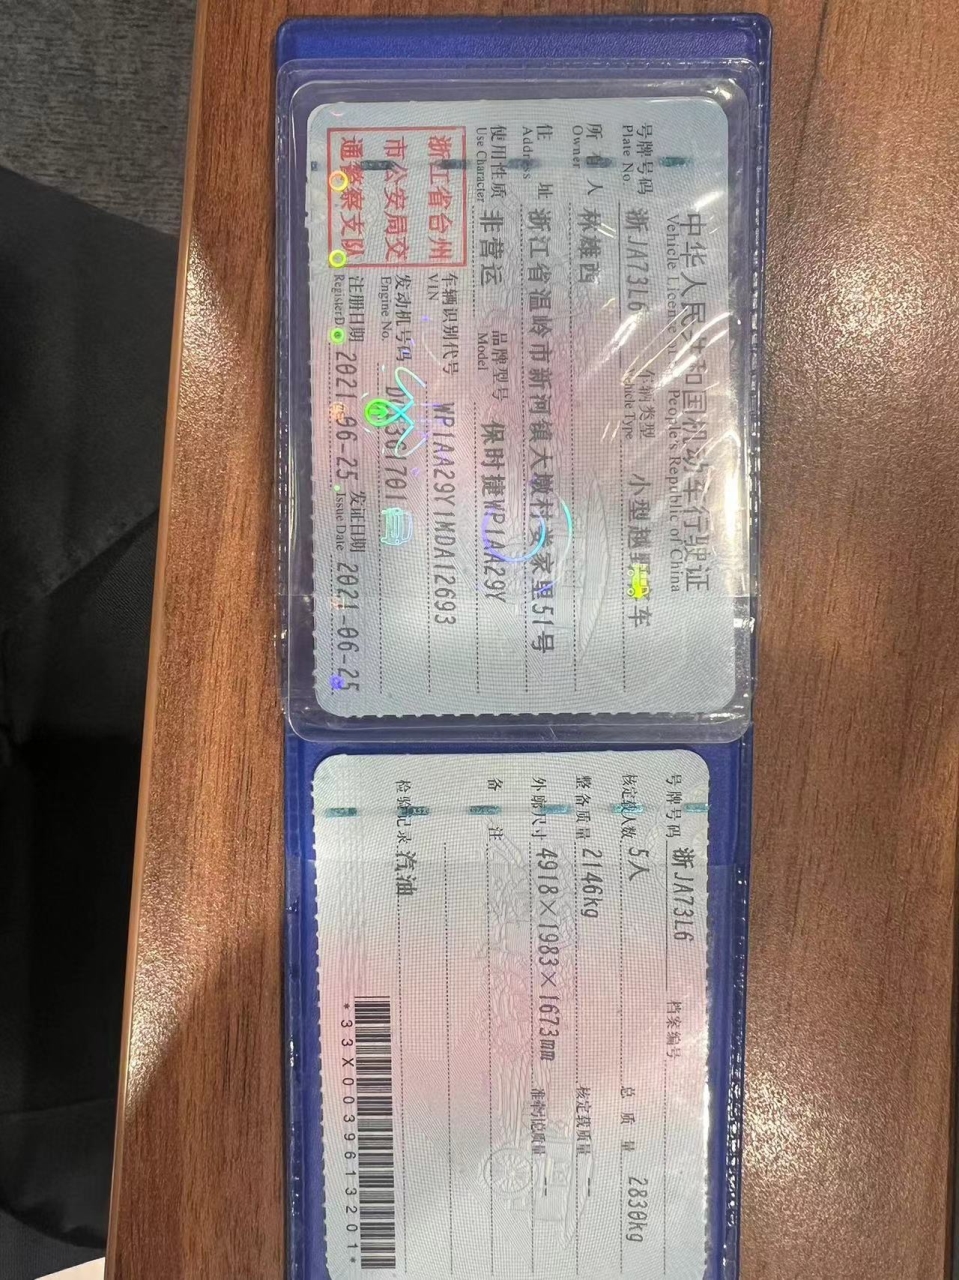 中华人民共和国机动车行驶证
Vehicle License of the People's Republic of China
号牌号码 浙JA73L6 车辆类型 小型越野客车
Plate No. Vehicle Type
所有人 林雄西
Owner
住址 浙江省温岭市新河镇大墩村娄家里51号
Address
使用性质 非营运 品牌型号 保时捷WP1AA29Y
Use Character Model
浙江省台州
市公安局交
通警察支队
车辆识别代号 WP1AA29Y1MDA12693
VIN
发动机号码
Engine No.
注册日期 2021-06-25 发证日期 2021-06-25
Register Date Issue Date
号牌号码 浙JA73L6 档案编号
核定载人数 5人 总质量 2830kg
整备质量 2146kg 核定载质量 --
外廓尺寸 4918×1983×1673mm 准牵引总质量 --
备注
检验记录 汽油
*33X0039613201*